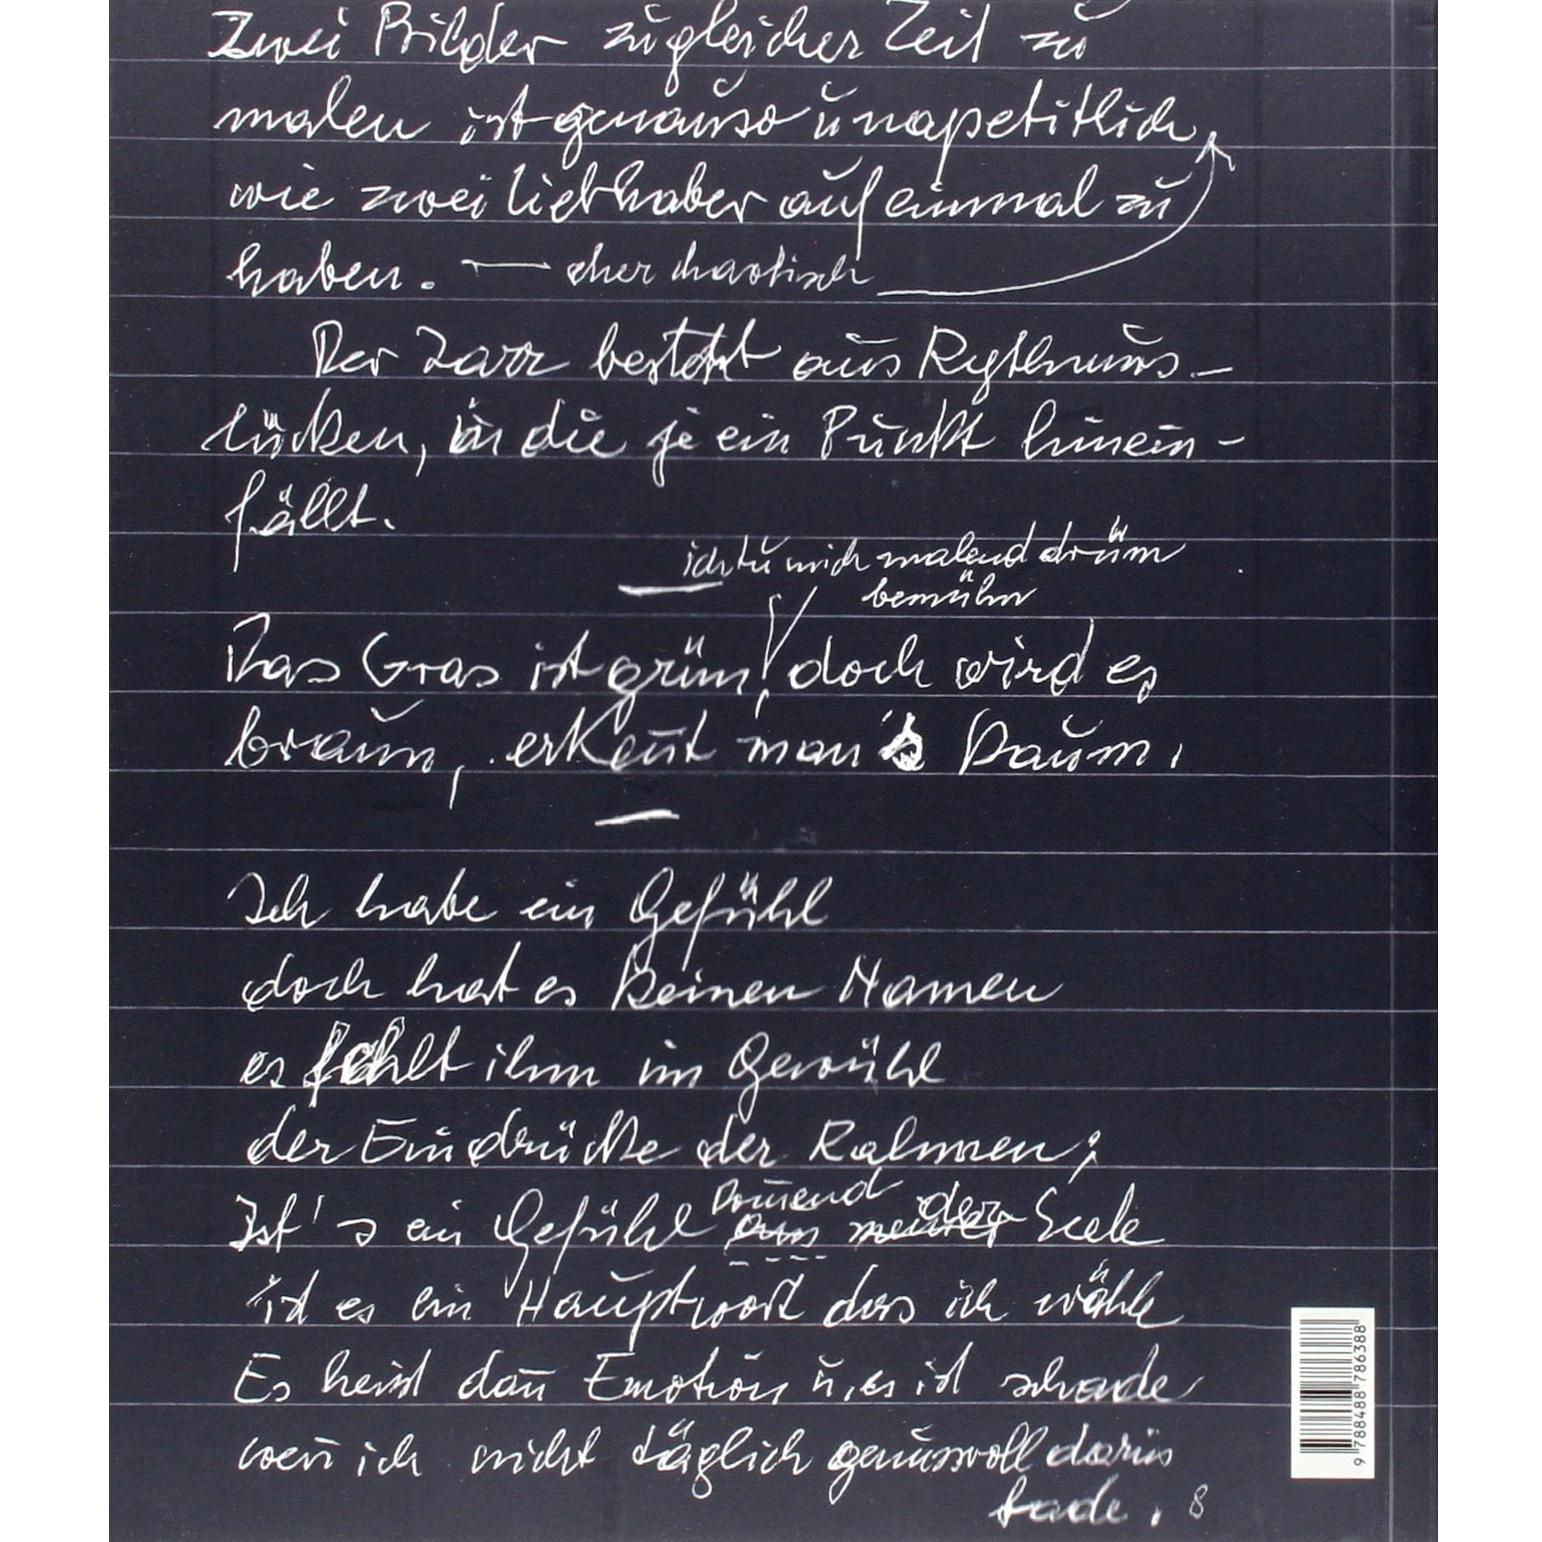 Zwei Bilder zu gleicher Zeit zu
malen ist genauso unapetitlich,
wie zwei Liebhaber auf einmal zu
haben. — eher chaotisch
Der Jazz besteht aus Rythmus-
lücken, in die je ein Punkt hinein-
fällt.
ich tu mich malend drüm
bemühn
Das Gras ist grün, doch wird es
braun, erkent man's kaum.
Ich habe ein Gefühl
doch hat es keinen Namen
es fehlt ihm im Gewühl
der Eindrücke der Rahmen;
komend der
Ist's ein Gefühl aus meiner Seele
ist es ein Hauptwort das ich wähle
Es heist dan̄ Emotion u, es ist schade
wen̄ ich nicht täglich genussvoll darin
bade. 8
9 788488 786388